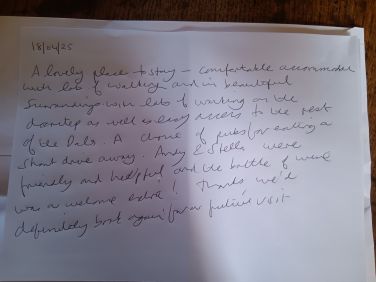 18/04/25
A lovely place to stay - comfortable accommodation
with lots of walking and in beautiful
surroundings with lots of walking on the
doorstep as well as easy access to the rest
of the Dales. A choice of pubs for eating a
short drive away. Andy & Stella were
friendly and helpful and the bottle of wine
was a welcome extra! Thanks we'd
definitely book again for a future visit